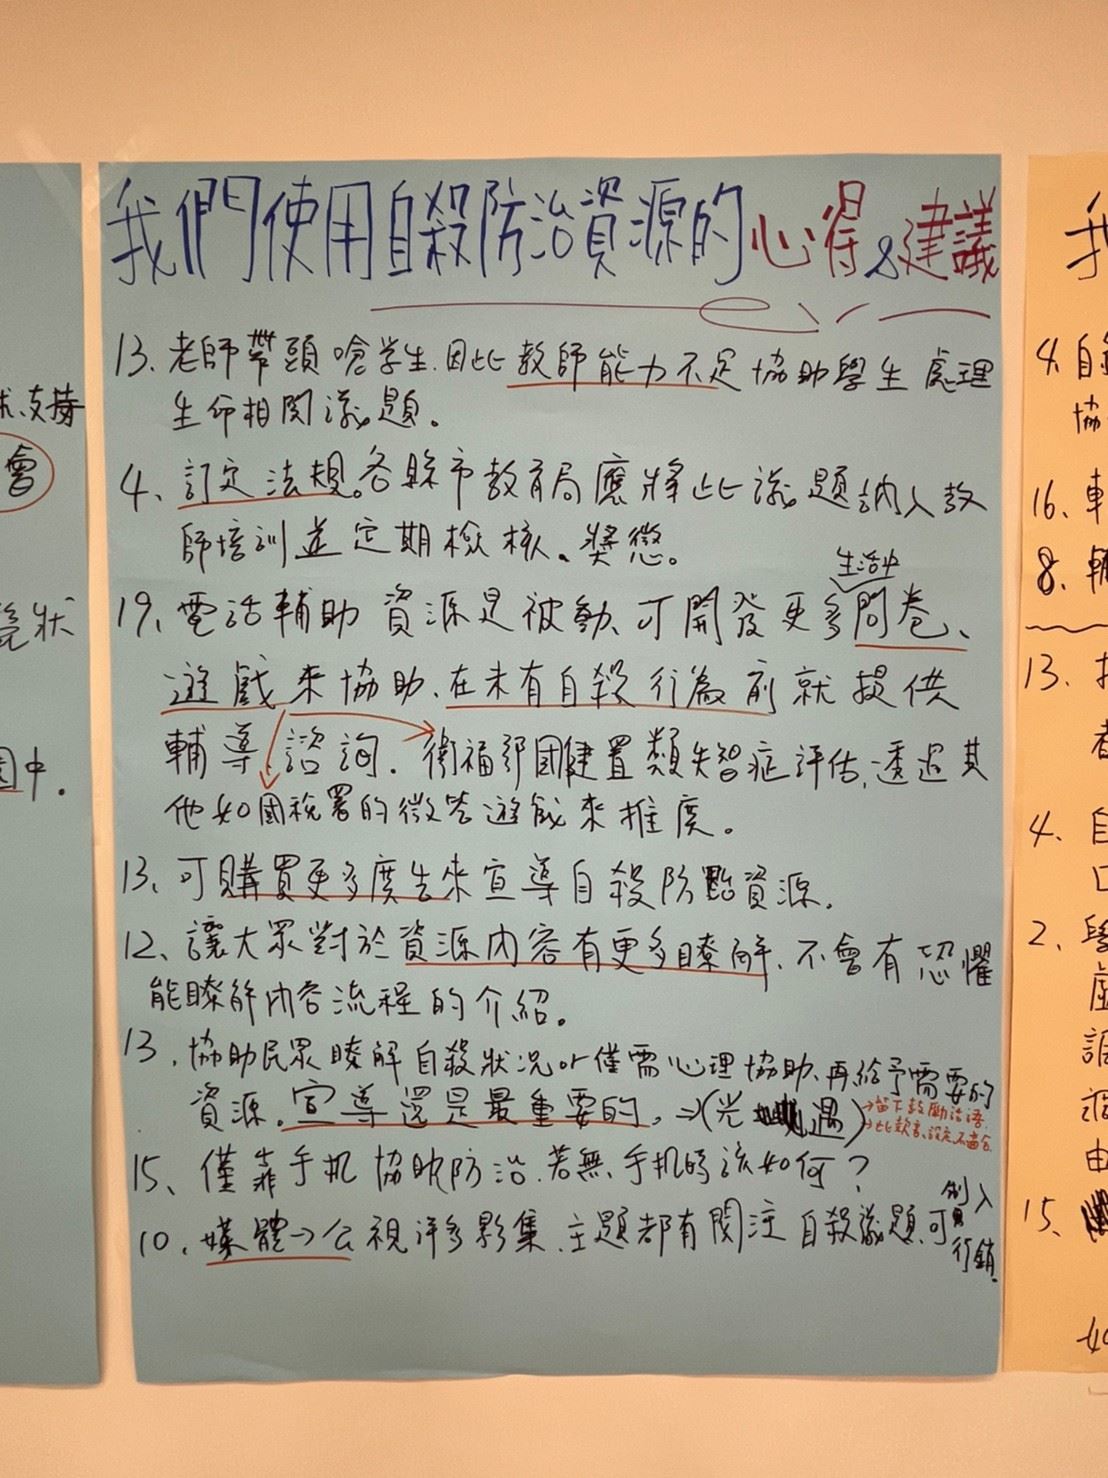 我們使用自殺防治資源的心得&建議
13. 老師帶頭嗆學生.因此教師能力不足協助學生處理
生命相関議題。
4、訂定法規。各縣市教育局應將此議題納入教
師培訓並定期檢核。獎懲。
生活中
19、電話輔助資源是被動、可開發更多問卷、
遊戲來協助、在未有自殺行為前就提供
輔導、諮詢. 衛福部國健署類失智症評估,透過其
他如國稅署的微笞遊戲來推廣。
13、可購買更多廣告來宣導自殺防治資源.
12、讓大眾對於資源內容有更多瞭解、不會有恐懼
能瞭解內容流程的介紹。
13. 協助民眾瞭解自殺狀況or僅需心理協助、再給予需要的
資源。宣導還是最重要的。⇒(光遇)
→留下鼓勵話語.
→此款言設定不適合.
15、僅靠手机協助防治.若無手机時該如何?
10. 媒體→公視許多影集、主題都有関注自殺議題,可
入
行銷.
求支持
會
竟狀
園中.
我
4.自
協
16、
8.輔
13.
者
4、自
口
2、學
虛
誤
週
由
15、
如